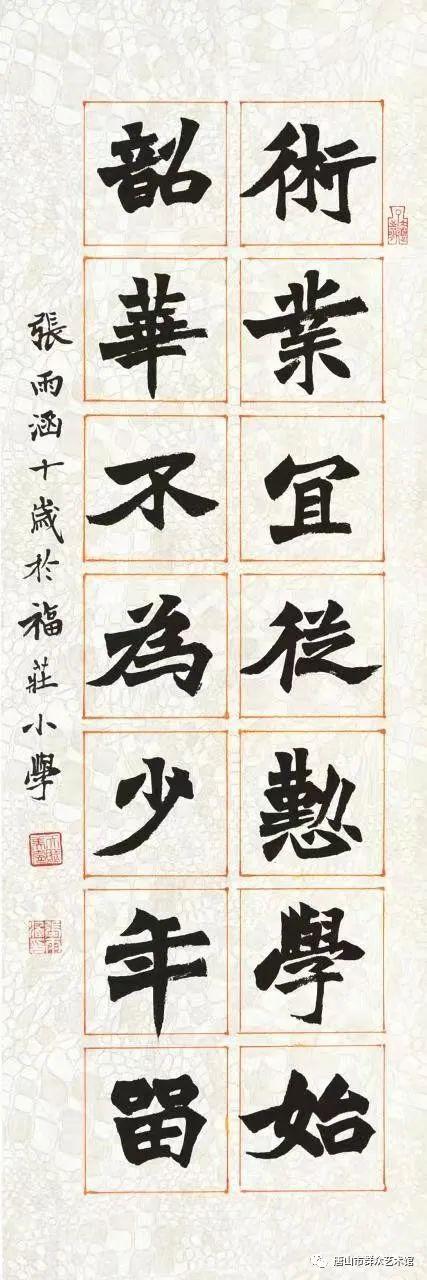 術業冝從懃學始
韶華不為少年留
張雨涵十歲於福莊小學
唐山市群众艺术馆